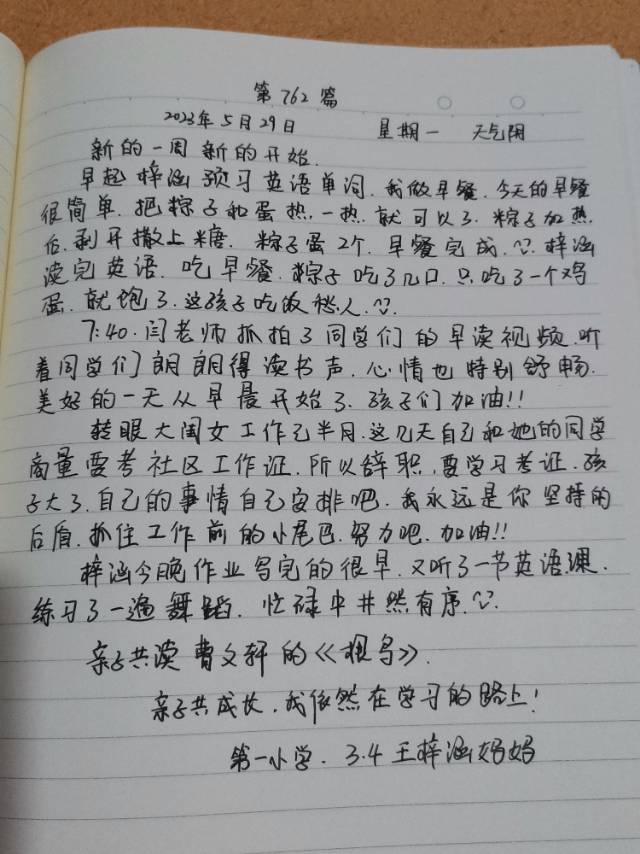 第762篇
2023年5月29日 星期一 天气阴
新的一周新的开始.
早起梓涵预习英语单词.我做早餐.今天的早餐
很简单.把粽子和蛋热.一热.就可以了.粽子加热
后.剥开撒上糖. 粽子蛋2个.早餐完成. 梓涵
读完英语.吃早餐.粽子吃了几口.只吃了一个鸡
蛋.就饱了.这孩子吃饭愁人.
7:40.闫老师抓拍了同学们的早读视频.听
着同学们朗朗得读书声.心情也特别舒畅.
美好的一天从早晨开始了.孩子们加油!!
转眼大闺女工作已半月.这几天自己和她的同学
商量要考社区工作证.所以辞职.要学习考证.孩
子大了.自己的事情自己安排吧.我永远是你坚持的
后盾.抓住工作前的小尾巴.努力吧.加油!!
梓涵今晚作业写完的很早.又听了一节英语课.
练习了一遍舞蹈.忙碌中井然有序.
亲子共读曹文轩的《根鸟》.
亲子共成长.我依然在学习的路上!
第一小学. 3.4 王梓涵妈妈